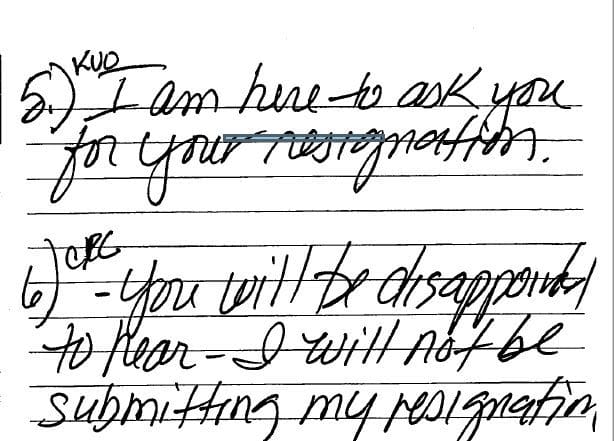 5.) KUO I am here to ask you
for your resignation.
6) CRC - You will be disappointed
to hear - I will not be
submitting my resignation,